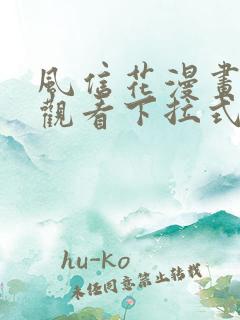 風信花漫畫
觀看下拉式
hu-ko
未經同意禁止轉載